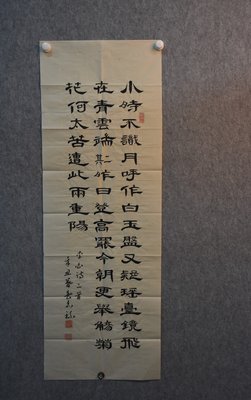 小時不識月呼作白玉盤又疑瑤臺鏡飛
在青雲端其二作日登高罷今朝更舉觴菊
花何太苦遭此兩重陽
李白詩二首